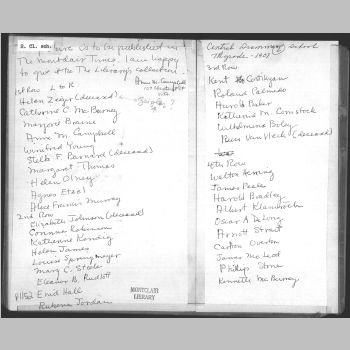 S. Cl. sch.
picture is to be published in
The Montclair Times. I am happy
to give it to The Library's collection.
Anne M. Campbell
1st Row L to R
Helen Zeger (deceased)
Catherine C. McBurney
Margaret Braine
Anne M. Campbell
Winifred Young
Stella F. Barnard (deceased)
Margaret Thomas
Helen Olney
Agnes Etzel
Alice Francis Murray
2nd Row
Elizabeth Johnson (deceased)
Corinne Robinson
Katherine Kondig
Helen James
Louise Springmeyer
Mary C. Steele
Eleanor B. Rudloff
P1152 Enid Hall
Rubena Jordan
MONTCLAIR
LIBRARY
Central Grammar School
7th grade - 1907
3rd Row
Kent Costikyan
Roland Palmedo
Harold Baker
Katherine M. Comstock
Wilhelmina
Van Vleck (deceased)
4th Row
Welton
James Peale
Harold Bradley
Albert
Oscar A. DeLong
Arnott Strait
Carlton Overton
James McLeod
Phillips Stone
Kenneth McBurney